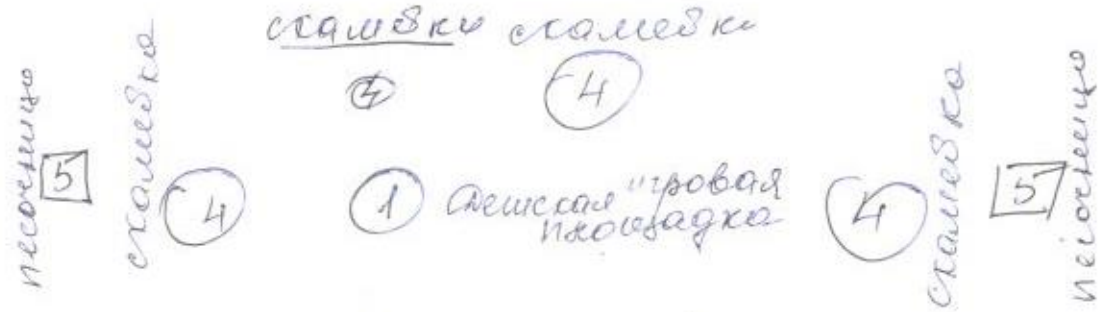 скамейки скамейки
4 4
песочница
5
скамейка
4
1 Детская игровая
площадка
4
скамейка
5
песочница